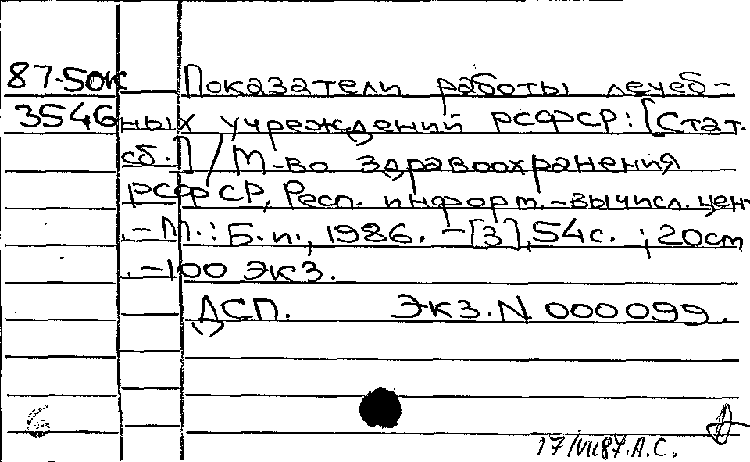 87-50к Показатели работы лечеб-
3546 ных учреждений РСФСР: [Стат.
сб.] / М-во здравоохранения
РСФСР, Респ. информ.-вычисл. цен
.-М.: Б.и., 1986. -[3], 54с. ; 20cm
.-100 экз.
ДСП. Экз. N 000099.
6
17/VII87. Л.С.